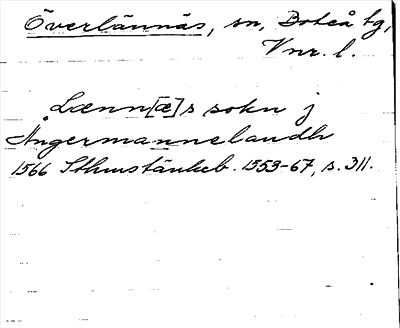 Överlännäs, sn, Boteå tg,
Vnr. l.
Lænn[æ]s sokn j
Ångermannelandh
1566 Sthmstänkeb. 1553-67, s. 311.